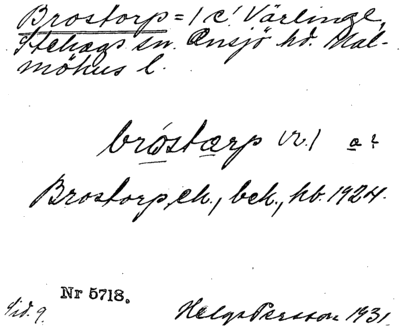 Brostorp = 1 c! Värlinge,
Stehags sn. Onsjö hd. Mal-
möhus l.
bróstærp nr. 1 a:
Brostorp, ek., bek., hb. 1924.
Nr 5718.
Sid. 9. Helge Persson 1931.